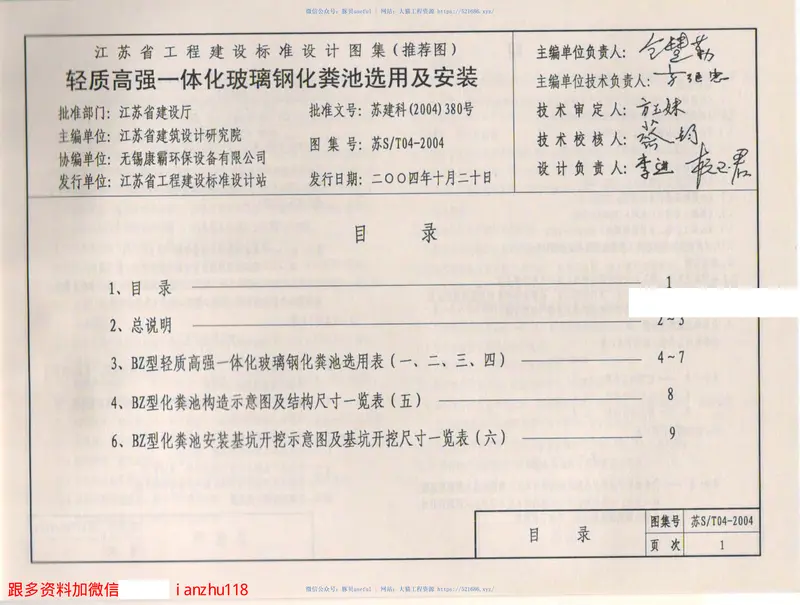 微信公众号：豚贝useful | 网站：大猫工程资源 https://521686.xyz/
江苏省工程建设标准设计图集(推荐图)
轻质高强一体化玻璃钢化粪池选用及安装
批准部门：江苏省建设厅
批准文号：苏建科(2004)380号
主编单位：江苏省建筑设计研究院
图 集 号：苏S/T04-2004
协编单位：无锡康霸环保设备有限公司
发行单位：江苏省工程建设标准设计站
发行日期：二〇〇四年十月二十日
主编单位负责人：
主编单位技术负责人：
技 术 审 定 人：
技 术 校 核 人：
设 计 负 责 人：李进
目 录
1、目 录 1
2、总说明 2~3
3、BZ型轻质高强一体化玻璃钢化粪池选用表(一、二、三、四) 4~7
4、BZ型化粪池构造示意图及结构尺寸一览表(五) 8
6、BZ型化粪池安装基坑开挖示意图及基坑开挖尺寸一览表(六) 9
目 录
图集号 苏S/T04-2004
页 次 1
跟多资料加微信 ianzhu118
微信公众号：豚贝useful | 网站：大猫工程资源 https://521686.xyz/